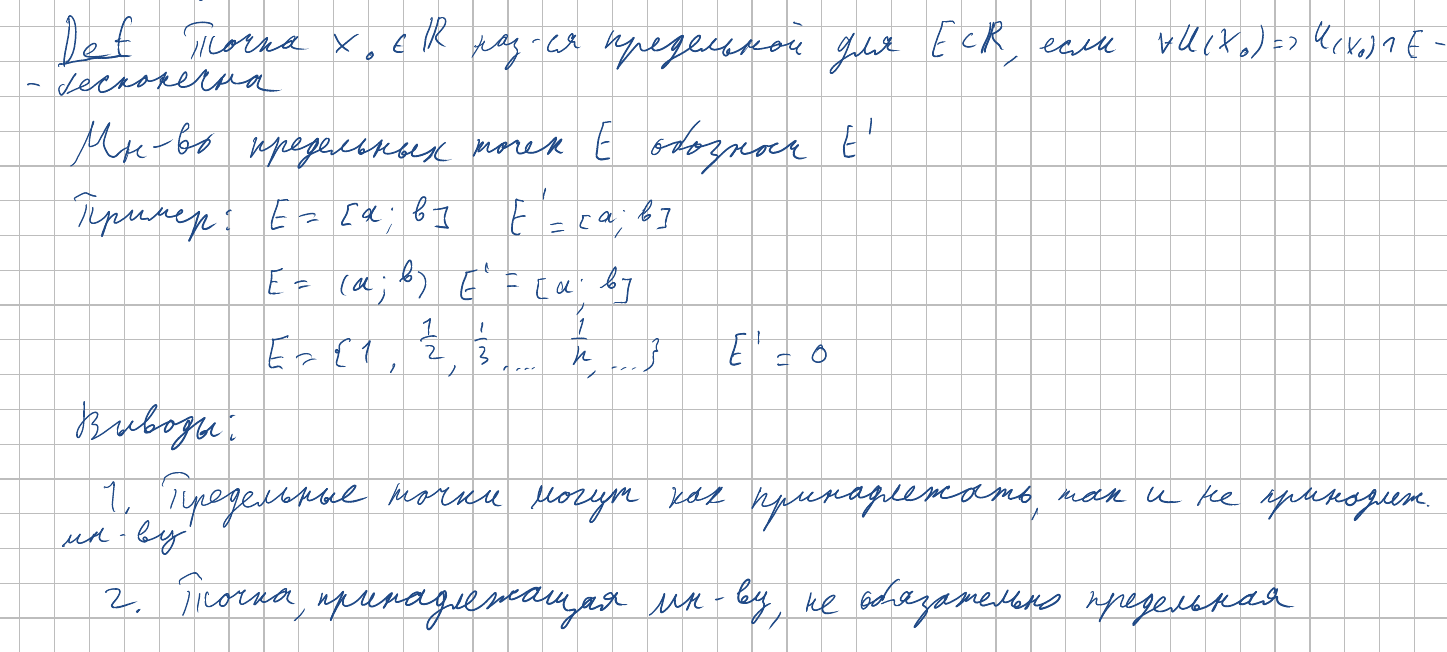 Def Точка x₀ ∈ ℝ наз-ся предельной для E ⊂ ℝ, если ∀U(x₀) => U(x₀) ∩ E -
- бесконечна
Мн-во предельных точек E обознач E'
Пример: E = [a; b] E' = [a; b]
E = (a; b) E' = [a; b]
E = {1, 1/2, 1/3, ... 1/n, ...} E' = 0
Выводы:
1. Предельные точки могут как принадлежать, так и не принадлеж.
мн-ву
2. Точка, принадлежащая мн-ву, не обязательно предельная